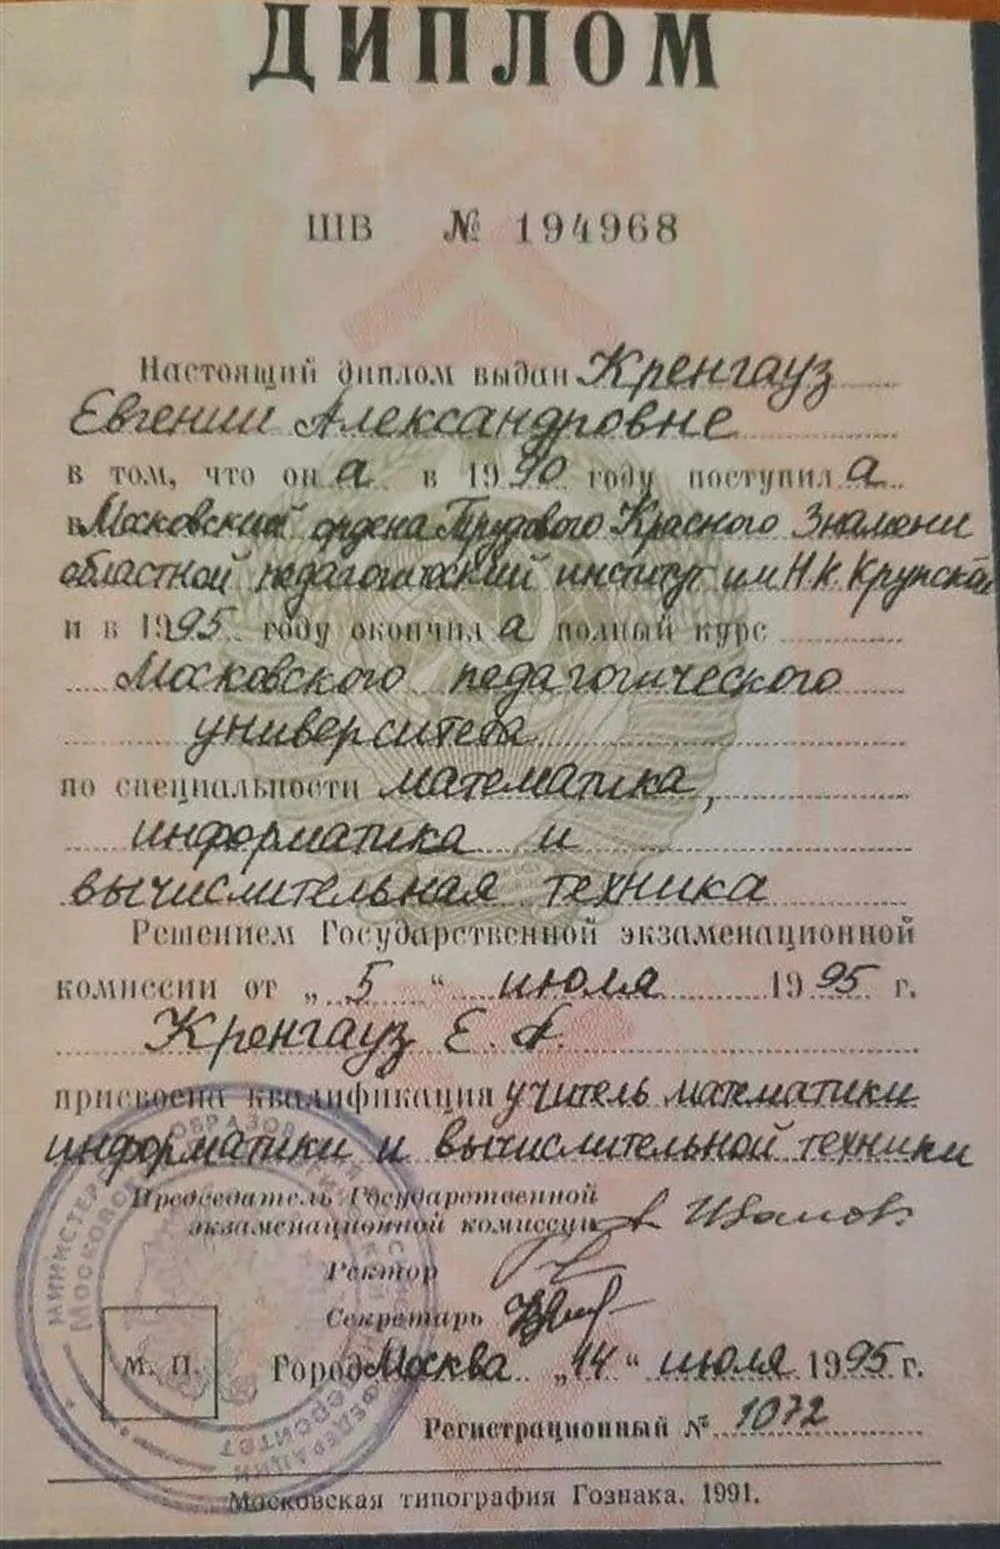 ДИПЛОМ
ШВ № 194968
Настоящий диплом выдан Кренгауз
Евгении Александровне
в том, что он а в 1990 году поступил а
в Московский ордена Трудового Красного Знамени
областной педагогический институт им Н.К. Крупской
и в 1995 году окончил а полный курс
Московского педагогического
университета
по специальности математика,
информатика и
вычислительная техника
Решением Государственной экзаменационной
комиссии от „5“ июля 1995 г.
Кренгауз Е. А.
присвоена квалификация учитель математики
информатики и вычислительной техники
Председатель Государственной
экзаменационной комиссии Иванов
Ректор
Секретарь
М. П. Город Москва „14“ июля 1995 г.
Регистрационный № 1072
Московская типография Гознака. 1991.